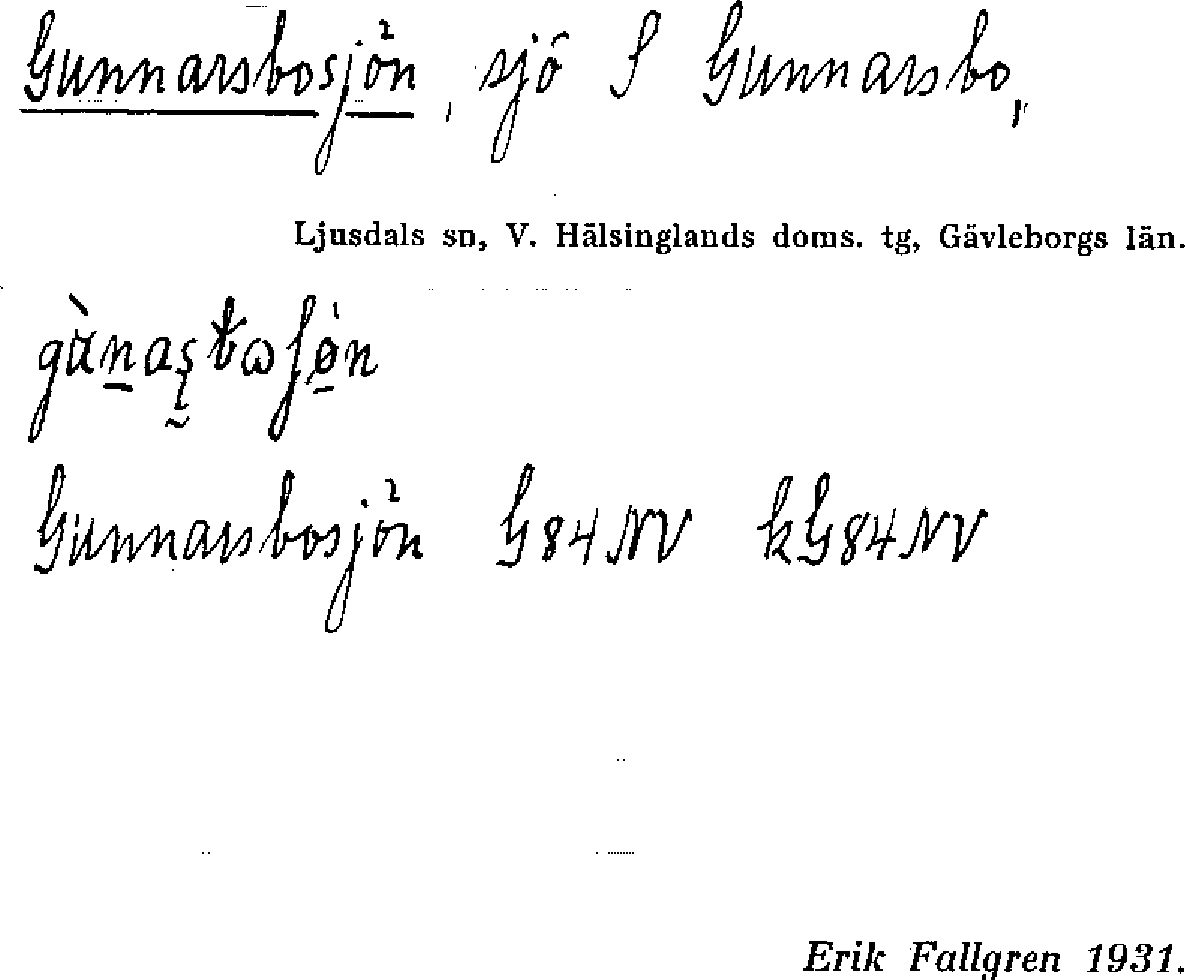 Gunnarsbosjön, sjö S Gunnarsbo,
Ljusdals sn, V. Hälsinglands doms. tg, Gävleborgs län.
Gunnarsbosjön G84NV kG84NV
Erik Fallgren 1931.